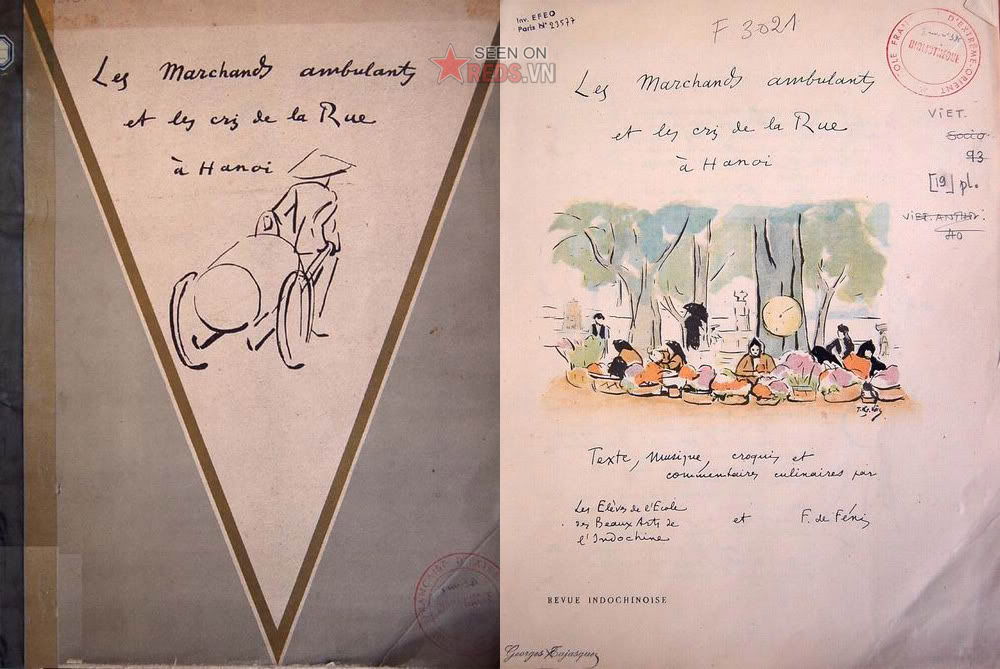 Les Marchands ambulants
et les cris de la Rue
à Hanoi
SEEN ON
REDS.VN
Inv. EFEO
Paris N° 23577
F 3021
Les Marchands ambulants
et les cris de la Rue
à Hanoi
VIET.
Socio
93
[19] pl.
Texte, Musique, croquis et
commentaires culinaires par
Les Elèves de l'Ecole
des Beaux Arts de
l'Indochine
et F. de Fénis
REVUE INDOCHINOISE
D'EXTRÊME-ORIENT